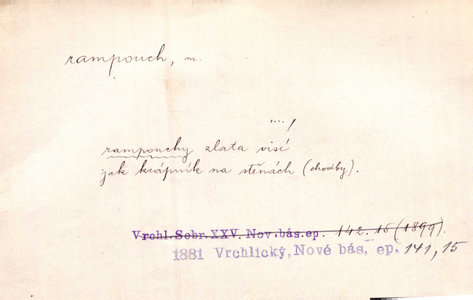 rampouch, m.
...., /
rampouchy zlata visí
jak krápník na stěnách (chodby).
Vrchl.Sebr.XXV. Nov.bás.ep. 142. 15 (1899).
1881 Vrchlický, Nové bás. ep. 141, 15